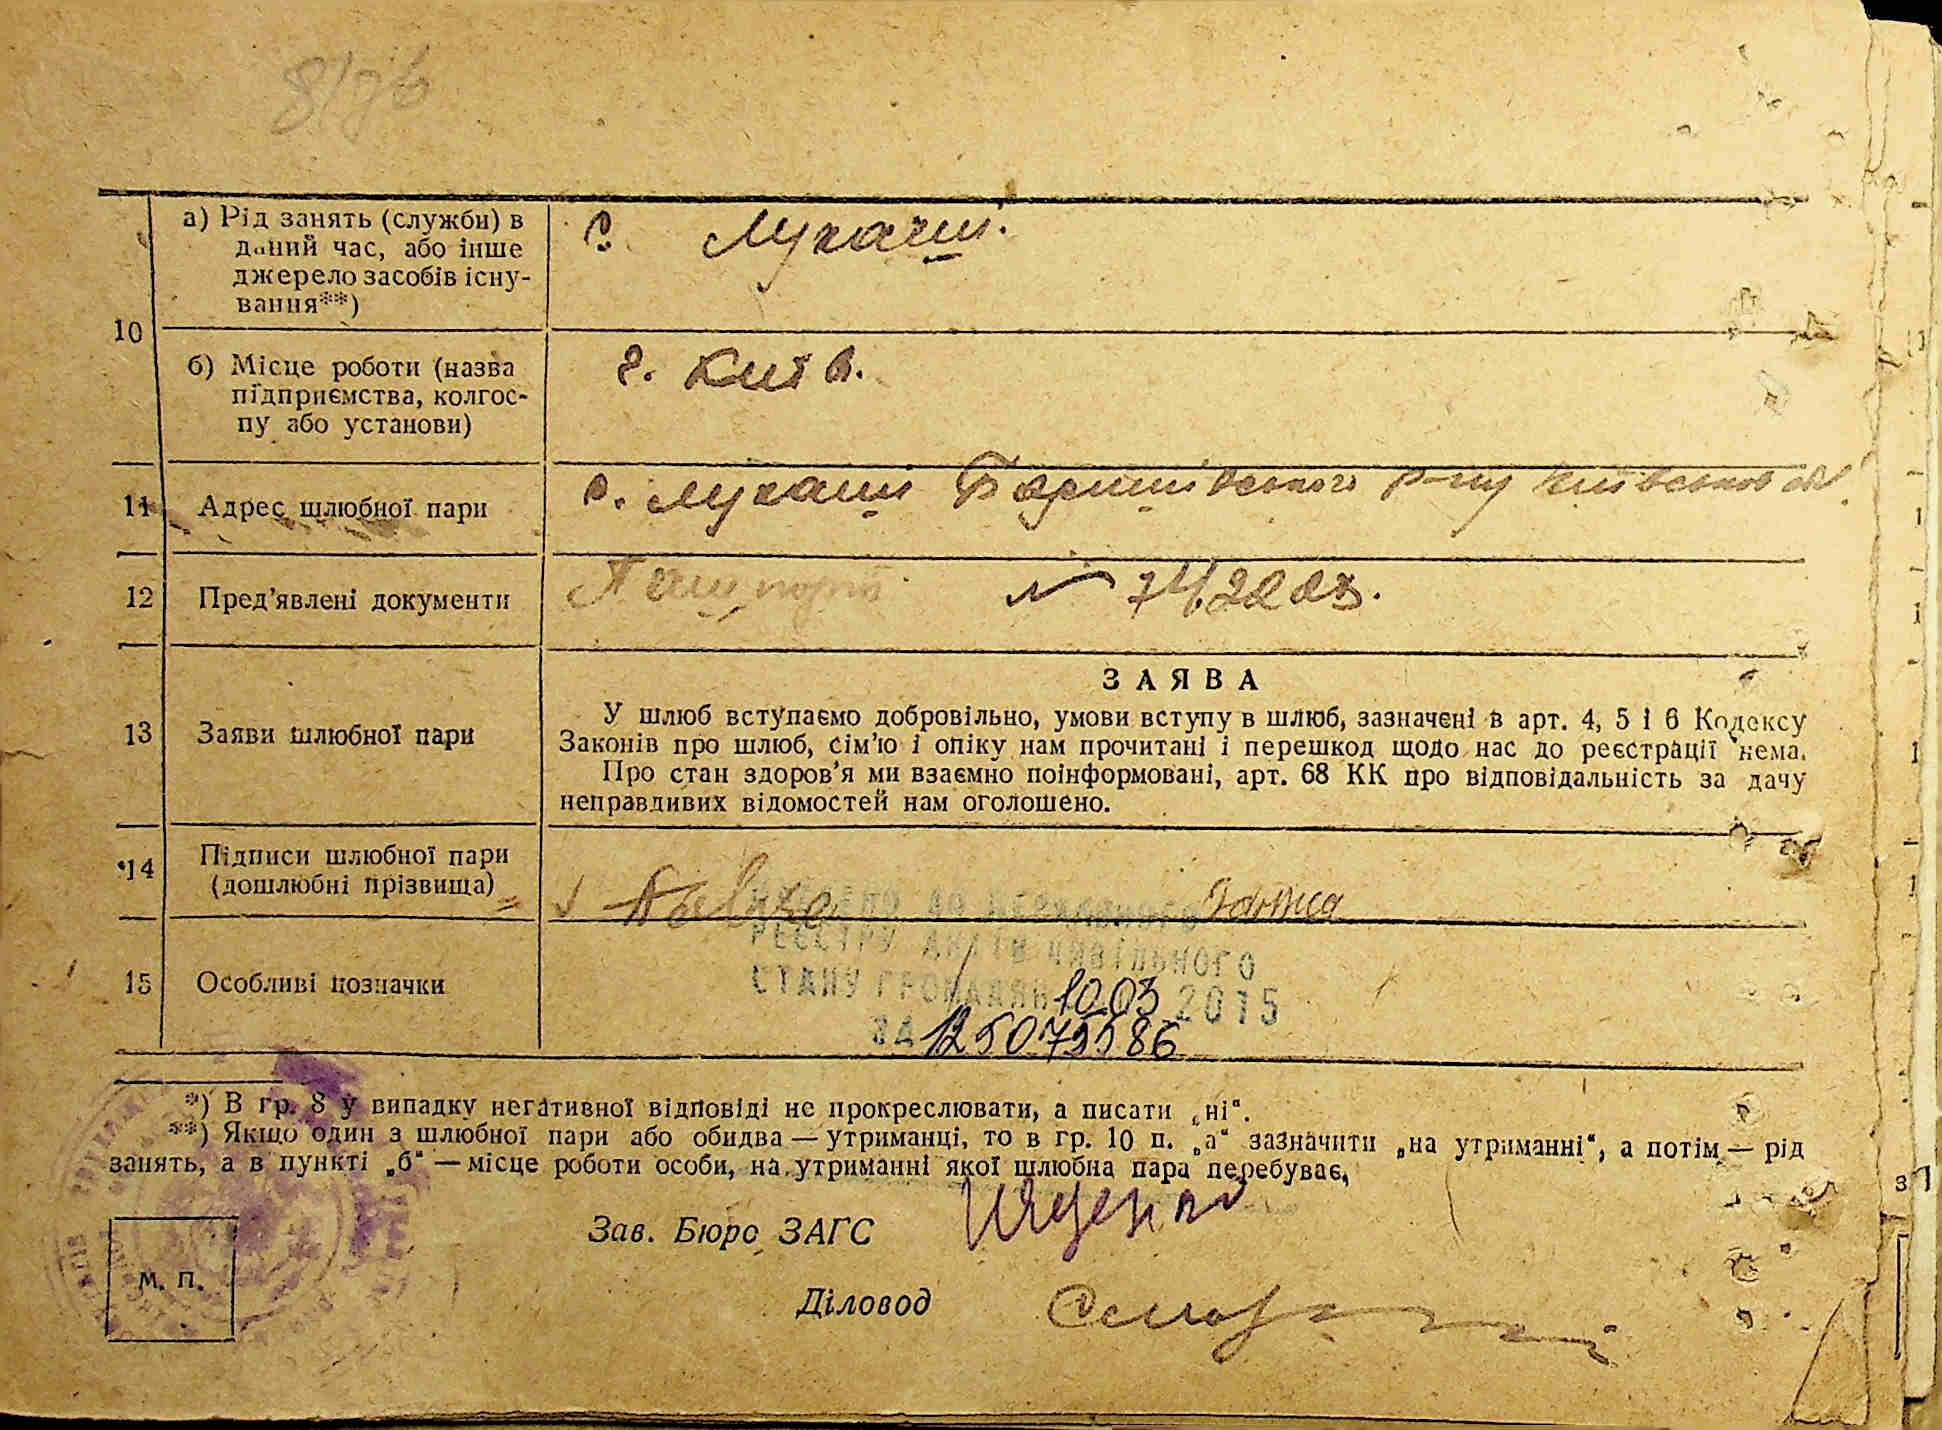 а) Рід занять (служби) в
даний час, або інше
джерело засобів існу-
вання**)
с. Лукаші.
10
б) Місце роботи (назва
підприємства, колгос-
пу або установи)
г. Київ.
11 Адрес шлюбної пари
с. Лукаші Баришівського р-ну Київської обл.
12 Пред’явлені документи
Пашпорт № 742203.
ЗАЯВА
13 Заяви шлюбної пари
У шлюб вступаємо добровільно, умови вступу в шлюб, зазначені в арт. 4, 5 і 6 Кодексу
Законів про шлюб, сім’ю і опіку нам прочитані і перешкод щодо нас до реєстрації нема.
Про стан здоров’я ми взаємно поінформовані, арт. 68 КК про відповідальність за дачу
неправдивих відомостей нам оголошено.
14 Підписи шлюбної пари
(дошлюбні прізвища)
ВНЕСЕНО ДО ДЕРЖАВНОГО
РЕЄСТРУ АКТІВ ЦИВІЛЬНОГО
15 Особливі позначки
СТАНУ ГРОМАДЯН 10.03 2015
ЗА
*) В гр. 8 у випадку негативної відповіді не прокреслювати, а писати „ні“.
**) Якщо один з шлюбної пари або обидва — утриманці, то в гр. 10 п. „а“ зазначити „на утриманні“, а потім — рід
занять, а в пункті „б“ — місце роботи особи, на утриманні якої шлюбна пара перебуває,
Зав. Бюро ЗАГС
М. П.
Діловод